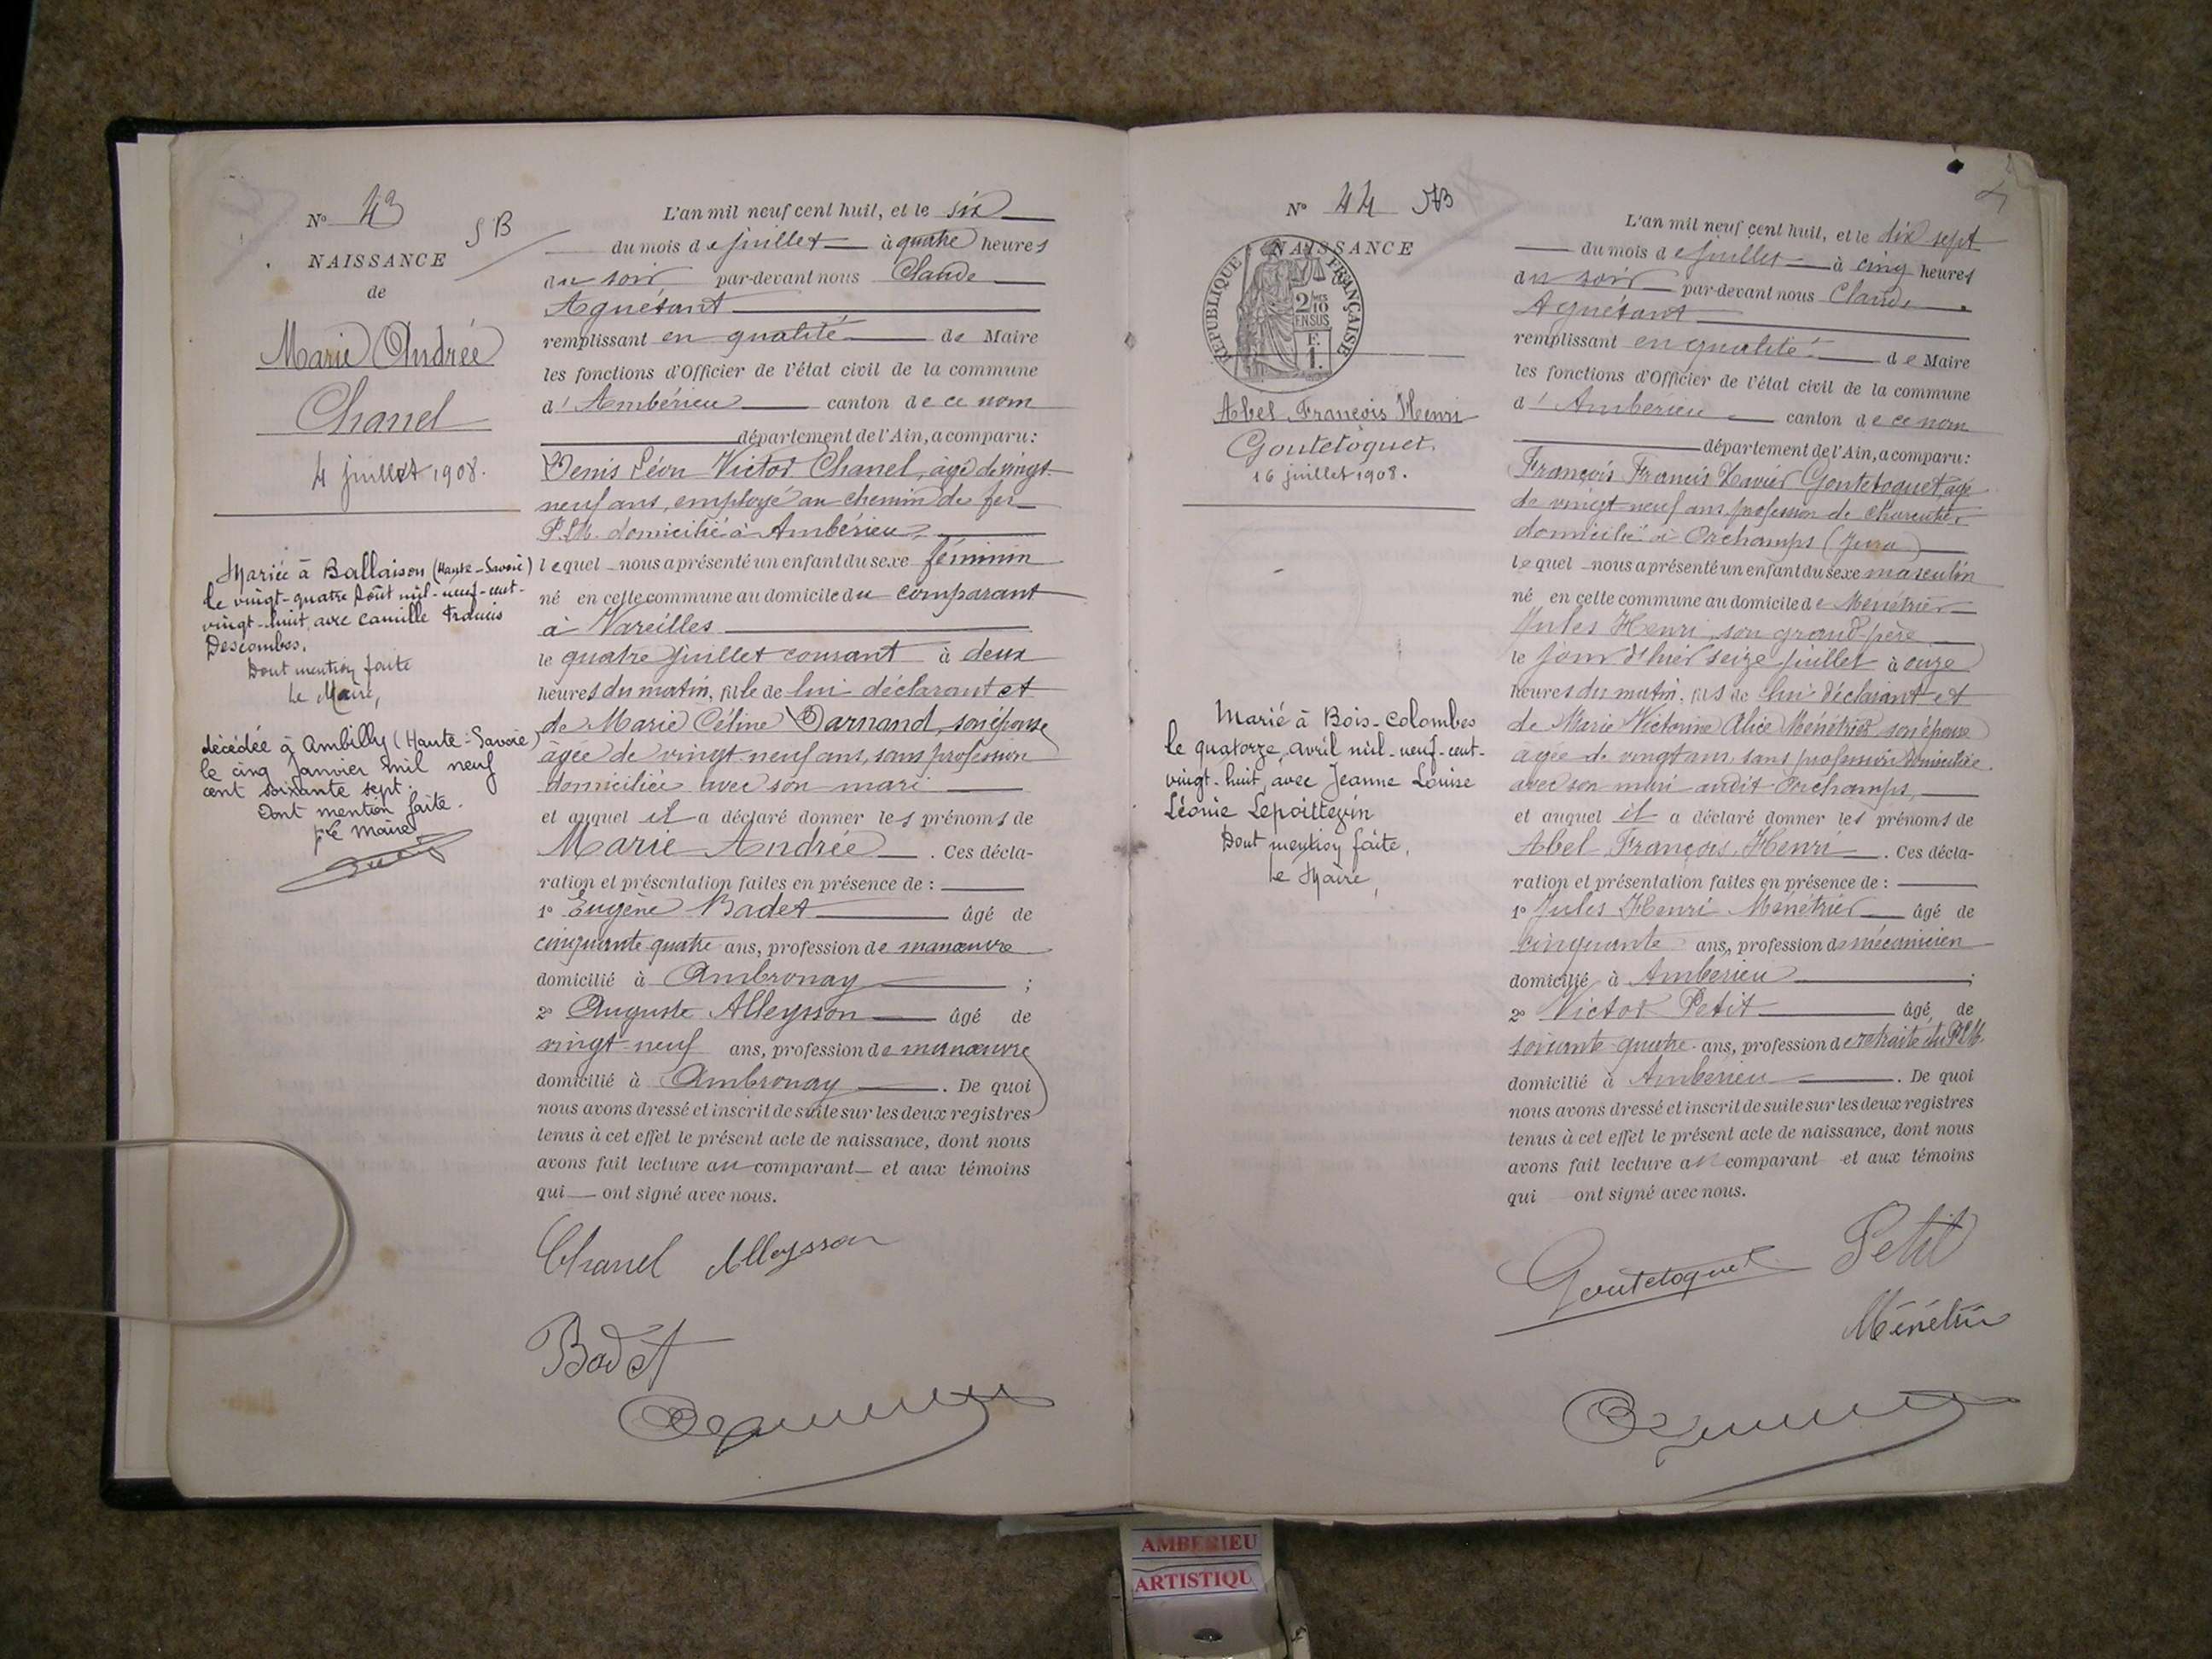 N° 43
S B
NAISSANCE
de
Marie Andrée
Chanel
4 juillet 1908.
Mariée à Ballaison (Haute-Savoie)
le vingt-quatre Août mil-neuf-cent-
vingt-huit, avec Camille Francis
Descombes.
Dont mention faite
Le Maire,
décédée à Ambilly (Haute-Savoie)
le cinq janvier mil neuf
cent soixante sept.
Dont mention faite.
Le Maire
L'an mil neuf cent huit, et le six
du mois de juillet à quatre heures
du soir par-devant nous Claude
Aguétant
remplissant en qualité de Maire
les fonctions d'Officier de l'état civil de la commune
d'Ambérieu canton de ce nom
département de l'Ain, a comparu:
Denis Léon Victor Chanel, âgé de vingt
neuf ans, employé au chemin de fer
P.L.M. domicilié à Ambérieu
lequel nous a présenté un enfant du sexe féminin
né en cette commune au domicile du comparant
à Vareilles
le quatre juillet courant à deux
heures du matin, fille de lui déclarant et
de Marie Céline Darnand, son épouse
âgée de vingt-neuf ans, sans profession
domiciliée avec son mari
et auquel il a déclaré donner les prénoms de
Marie Andrée. Ces décla-
ration et présentation faites en présence de :
1° Eugène Badet âgé de
cinquante quatre ans, profession de manœuvre
domicilié à Ambronay ;
2° Auguste Alleysson âgé de
vingt neuf ans, profession de manœuvre
domicilié à Ambronay. De quoi
nous avons dressé et inscrit de suite sur les deux registres
tenus à cet effet le présent acte de naissance, dont nous
avons fait lecture au comparant et aux témoins
qui ont signé avec nous.
Chanel Alleysson
Badet
N° 44
NAISSANCE
RÉPUBLIQUE FRANÇAISE
2/10
EN SUS
F.
1.
Abel François Henri
Goutetoquet.
16 juillet 1908.
Marié à Bois-Colombes
le quatorze avril mil-neuf-cent-
vingt-huit, avec Jeanne Louise
Léonie Lepoittevin
Dont mention faite,
Le Maire,
L'an mil neuf cent huit, et le dix sept
du mois de juillet à cinq heures
du soir par-devant nous Claude
Aguétant
remplissant en qualité de Maire
les fonctions d'Officier de l'état civil de la commune
d'Ambérieu canton de ce nom
département de l'Ain, a comparu:
François Francis Xavier Goutetoquet, âgé
de vingt-neuf ans, profession de
domicilié à Orchamps (Jura)
lequel nous a présenté un enfant du sexe masculin
né en cette commune au domicile de Ménétrier
Jules Henri, son grand-père
le jour d'hier seize juillet à onze
heures du matin, fils de lui déclarant et
de Marie Victorine Alice Ménétrier son épouse
âgée de vingt ans, sans profession domiciliée
avec son mari audit Orchamps,
et auquel il a déclaré donner les prénoms de
Abel François Henri. Ces décla-
ration et présentation faites en présence de :
1° Jules Henri Ménétrier âgé de
cinquante ans, profession de mécanicien
domicilié à Ambérieu ;
2° Victor Petit âgé de
soixante-quatre ans, profession de retraité du P.L.M.
domicilié à Ambérieu. De quoi
nous avons dressé et inscrit de suite sur les deux registres
tenus à cet effet le présent acte de naissance, dont nous
avons fait lecture au comparant et aux témoins
qui ont signé avec nous.
Goutetoquet Petit
Ménétrier
AMBERIEU
ARTISTIQU